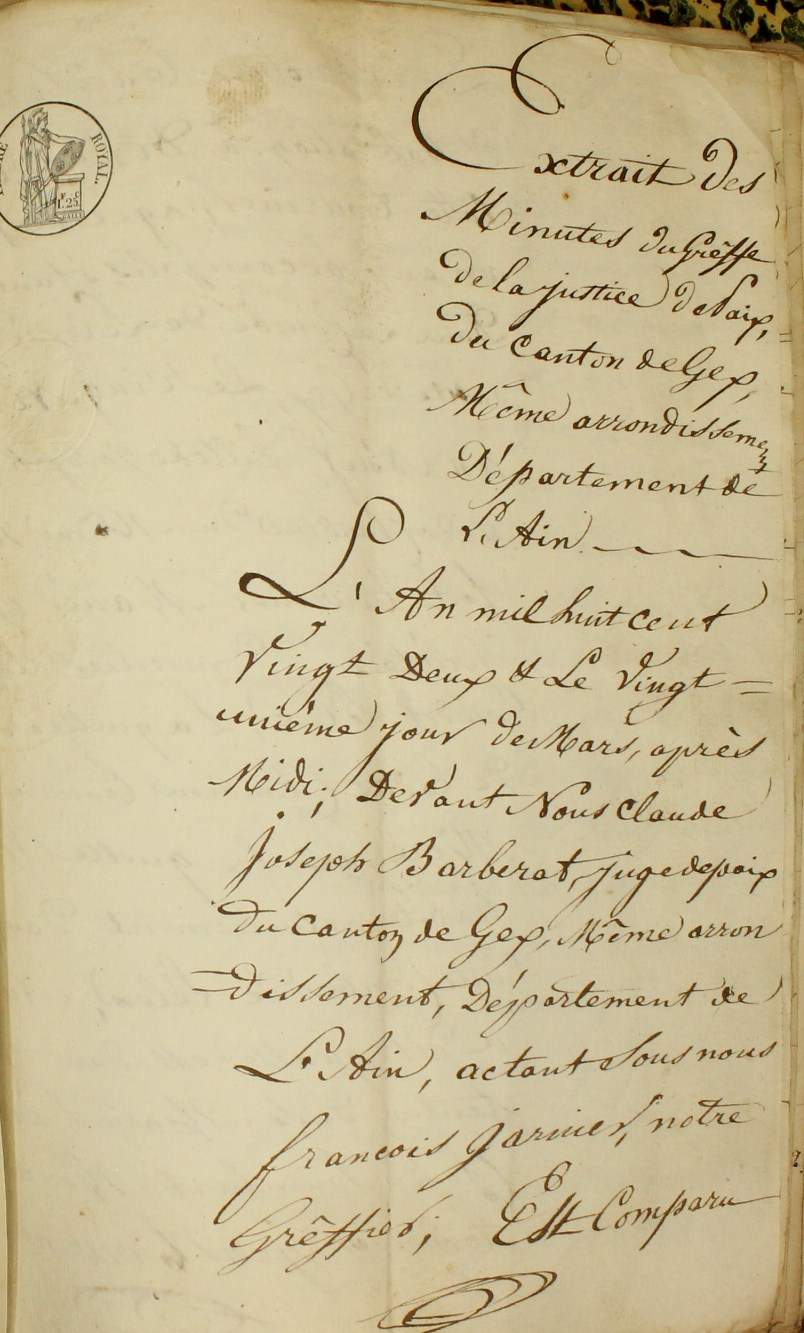 ROYAL.
1.F 25.C
Extrait Des
Minutes du Grêffe
De la justice De Paix,
Du Canton de Gex,
Même arrondissement
Département de
L'Ain
L'An mil huit cent
Vingt Deux & Le Vingt =
unième jour de Mars, après
Midi; Devant Nous Claude
Joseph Barberat, juge de paix
Du Canton de Gex, Même arron
=dissement, Département de
L'Ain, actant Sous nous
françois jarnier, notre
Grêffier; Est Comparu